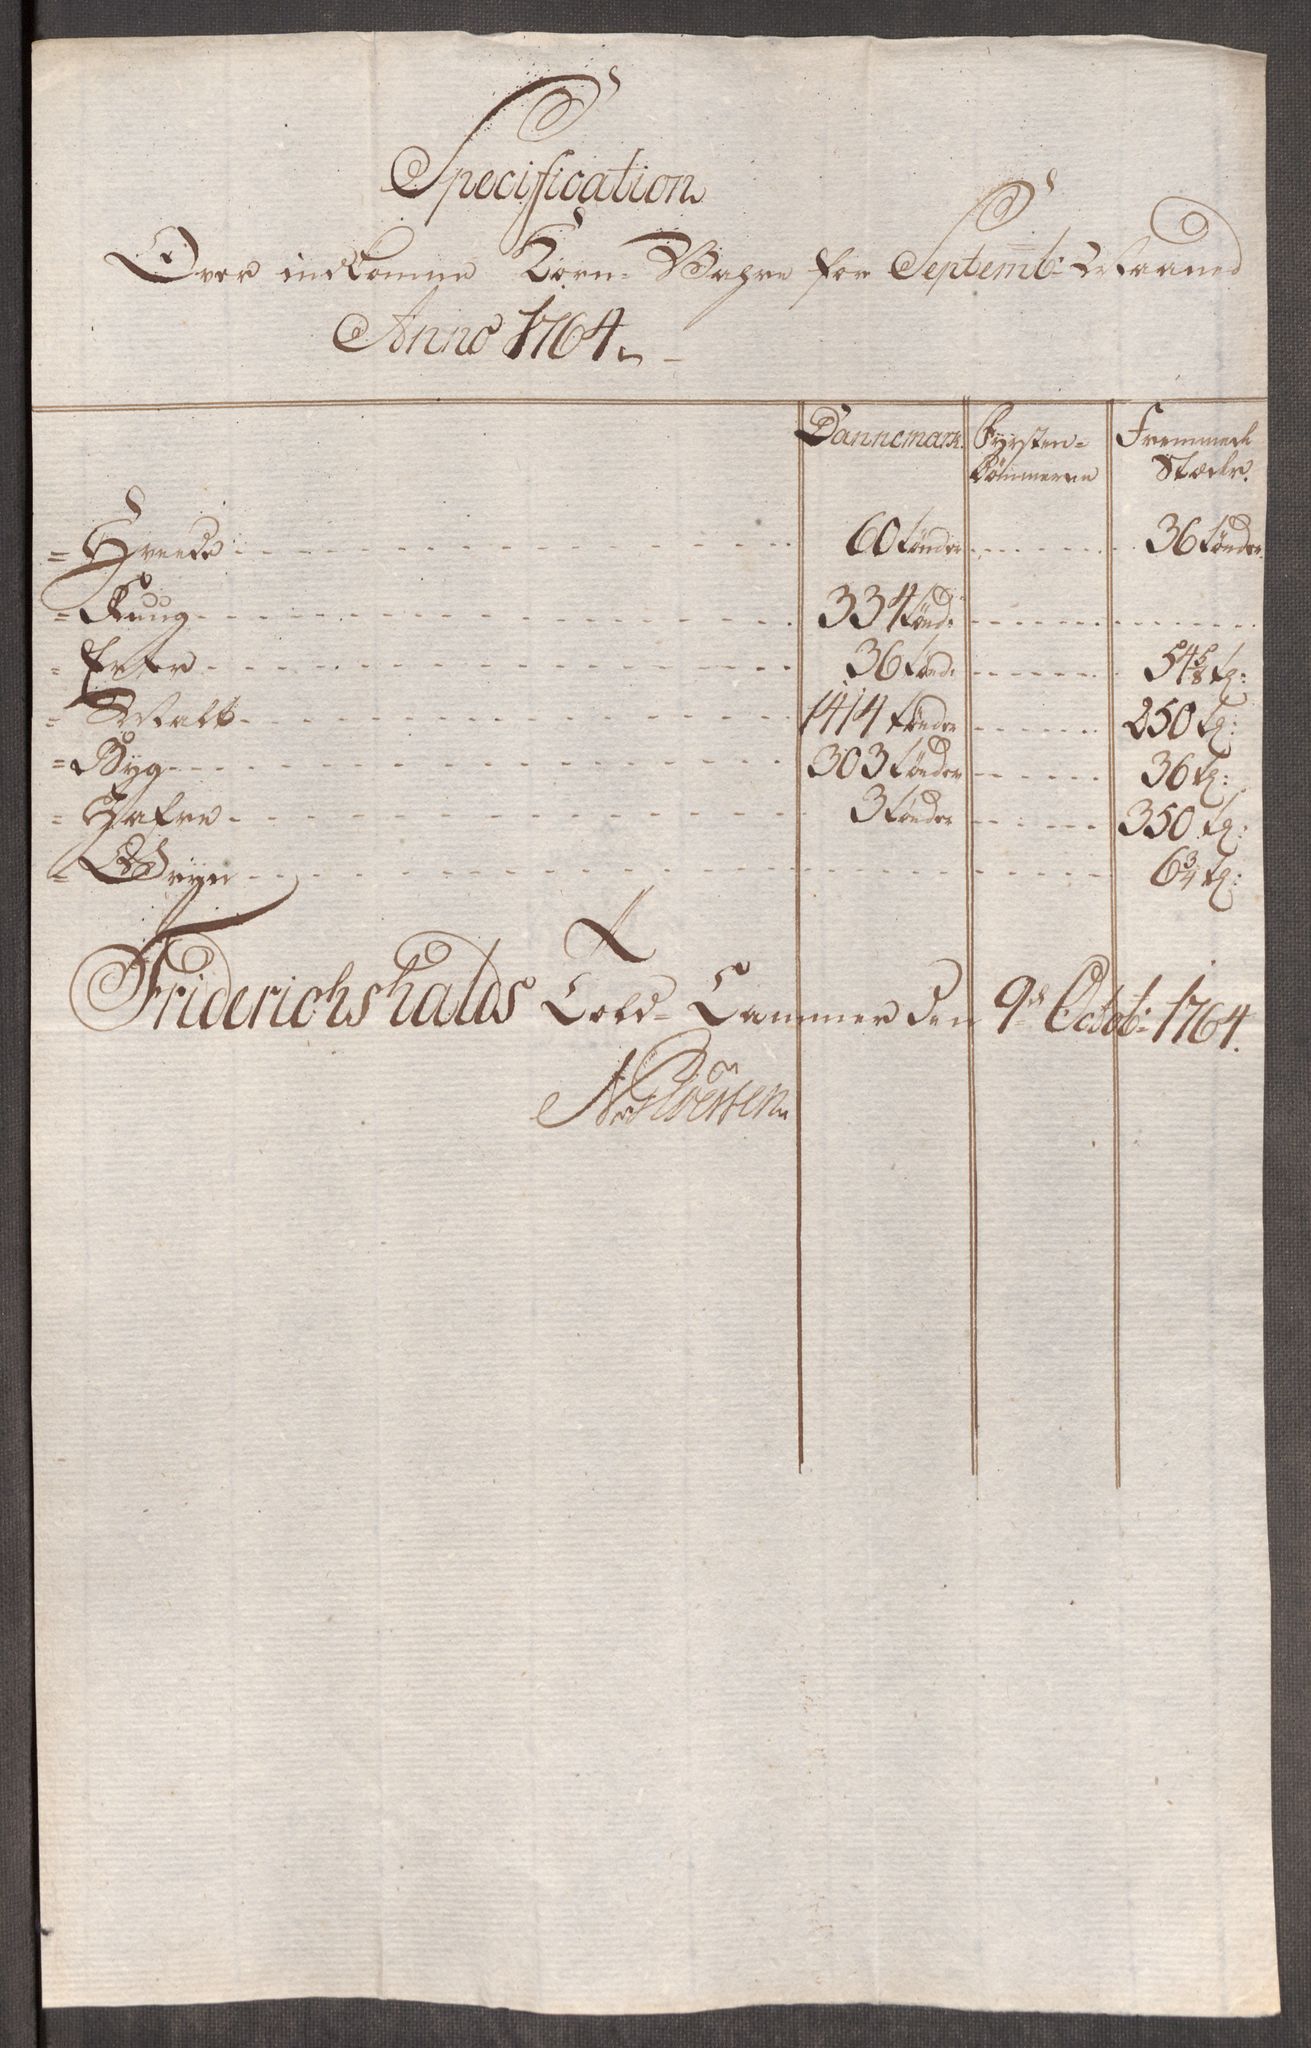 Specification
Over indkomne Korn-Vahre for Septembr: Maaned
Anno 1764
Dannemark. Fyrsten- Fremmede
dømmerne Stæder.
= Hvede 60 tønder 36 tønder.
= Rug 334 tønd:
= Erter 36 tønd: 54 5/8 tr:
= Malt 1414 tønder 250 tr:
= Byg 303 tønder 36 tr:
= Hafre 3 tønder 350 tr:
= Gryn 6 3/4 tr:
Friderichshalds Told-Cammer den 9de Octob: 1764.